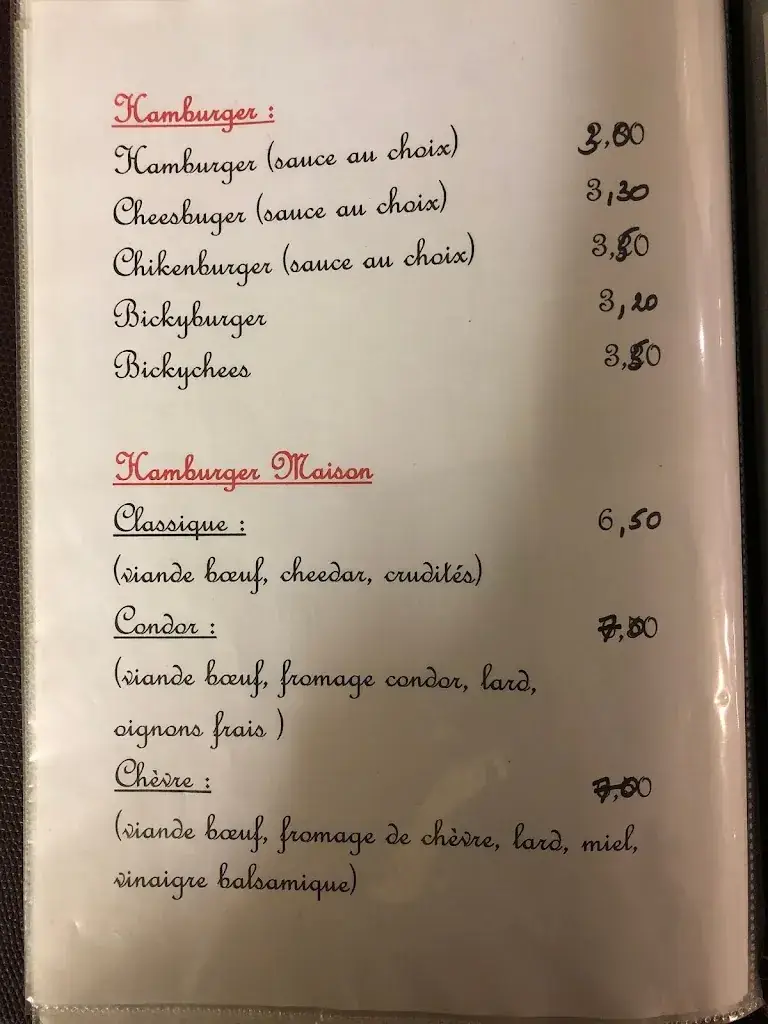 Hamburger :
Hamburger (sauce au choix) 3,00
Cheesbuger (sauce au choix) 3,30
Chikenburger (sauce au choix) 3,50
Bickyburger 3,20
Bickychees 3,50
Hamburger Maison
Classique : 6,50
(viande bœuf, cheedar, crudités)
Condor :
(viande bœuf, fromage condor, lard,
oignons frais )
Chèvre :
(viande bœuf, fromage de chèvre, lard, miel,
vinaigre balsamique)